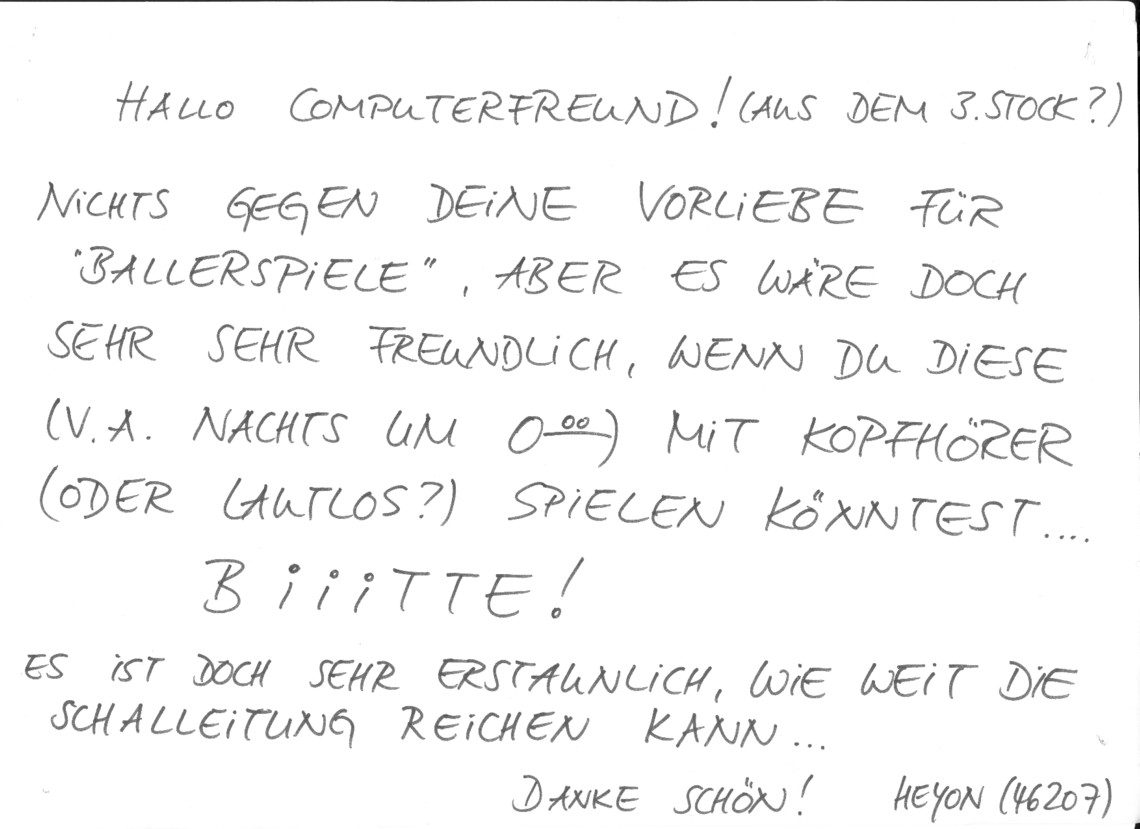 HALLO COMPUTERFREUND! (AUS DEM 3. STOCK?)
NiCHTS GEGEN DEiNE VORLiEBE FÜR
"BALLERSPiELE", ABER ES WÄRE DOCH
SEHR SEHR FREUNDLiCH, WENN DU DiESE
(V.A. NACHTS UM 0⁰⁰) MiT KOPFHÖRER
(ODER LAUTLOS?) SPiELEN KÖNNTEST....
BiiiTTE!
ES iST DOCH SEHR ERSTAUNLiCH, WiE WEiT DiE
SCHALLEiTUNG REiCHEN KANN...
DANKE SCHÖN! HEYON (46207)